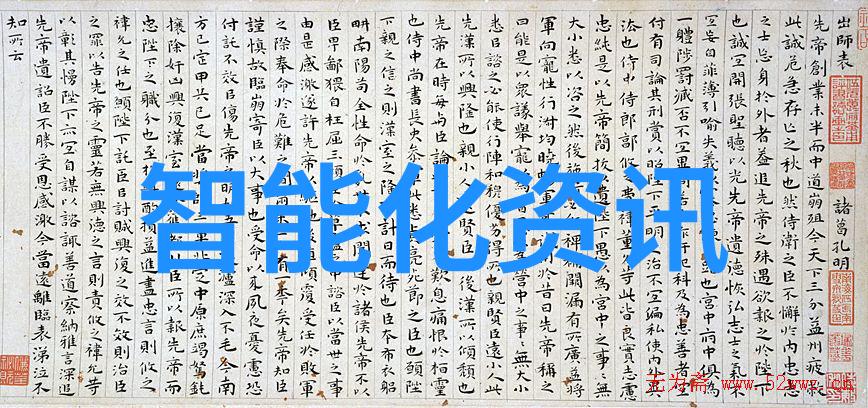 出師表 諸葛孔明
先帝創業未半而中道崩殂今天下三分益州疲敝
此誠危急存亡之秋也然侍衛之臣不懈於內忠志
之士忘身於外者蓋追先帝之殊遇欲報之於陛下
也誠宜開張聖聽以光先帝遺德恢弘志士之氣不
宜妄自菲薄引喻失義以也宮中府中俱為
一體陟罰臧否不宜異同科及為忠善者宜
付有司論其刑賞以昭陛下平明治不宜偏私使內外
法也侍中侍郎郭攸費禕董允等此皆良實志慮
忠純是以先帝簡拔以遺陛下愚以為宮中之事事無
大小悉以咨之然後施裨補闕漏有所廣益將
軍向寵性行淑均曉暢軍於昔日先帝稱之
曰能是以眾議舉寵為營中之事事無大小
悉臣諮之必能使行陣和穆優劣得所也親賢臣遠小人此
先漢所以興隆也親小人賢臣後漢所以傾頹也
先帝在時每與臣論歎息痛恨於桓靈
也侍中尚書長史參悉貞亮死節之臣也願陛
下親之信之則漢室之隆計日而待也臣本布衣躬
耕南陽苟全性命於求聞達於諸侯先帝不以
臣卑鄙猥自枉屈三顧之中諮臣以當世之事
由是感激遂許先帝後值傾覆受任於敗軍
之際奉命於危難之間有一年矣先帝知臣
謹慎故臨崩寄臣以大事也受命以來夙夜憂慮恐
付託不效以傷先帝之明瀘深入不毛今南
方已定甲兵已足當三軍北定中原庶竭駑鈍
攘除奸凶興復漢室所以報先帝而
忠陛下之職分也至損益進盡忠言則攸之
禕允之任也願陛下託臣以討賊興復之效不效則治臣
之罪以告先帝之靈若無興德之言則責攸之禕允等
以彰其慢陛下亦宜自謀以諮諏善道察納雅言深追
先帝遺詔臣不勝受恩感激今當遠離臨表涕泣不
知所云
智能化资讯
无为斋 www.52wwz.cn